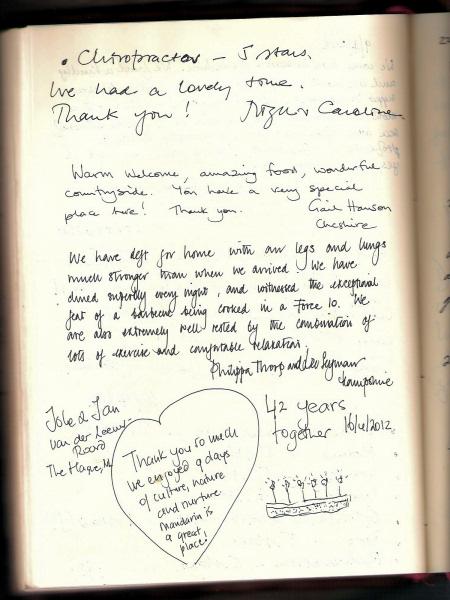 • Chiropractor – 5 stars.
We had a lovely time.
Thank you! Caroline
Warm welcome, amazing food, wonderful
countryside. You have a very special
place here! Thank you. Gail Hanson
Cheshire
We have left for home with our legs and lungs
much stronger than when we arrived. We have
dined superbly every night, and witnessed the exceptional
feat of a barbecue being cooked in a Force 10. We
are also extremely well rested by the combination of
lots of exercise and comfortable relaxation.
Philippa Thorp and
Hampshire
Joke & Jan
van der Leeuw-
Roord
The Hague,
Thank you so much
we enjoyed 9 days
of culture, nature
and nurture.
Mandarin is
a great
place!
42 years
together 16/4/2012